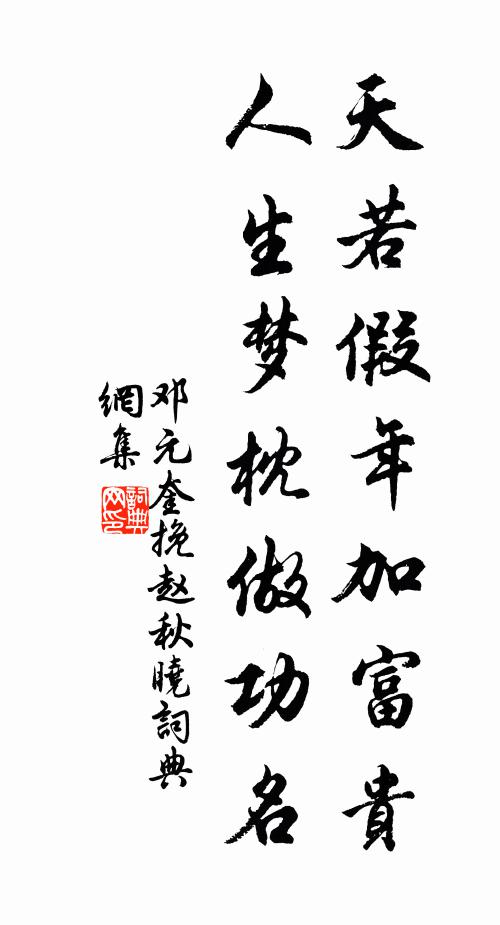 天若假年加富貴
人生梦枕做功名
邓元奎挽赵秋曉詞典
網集
詞典
网印